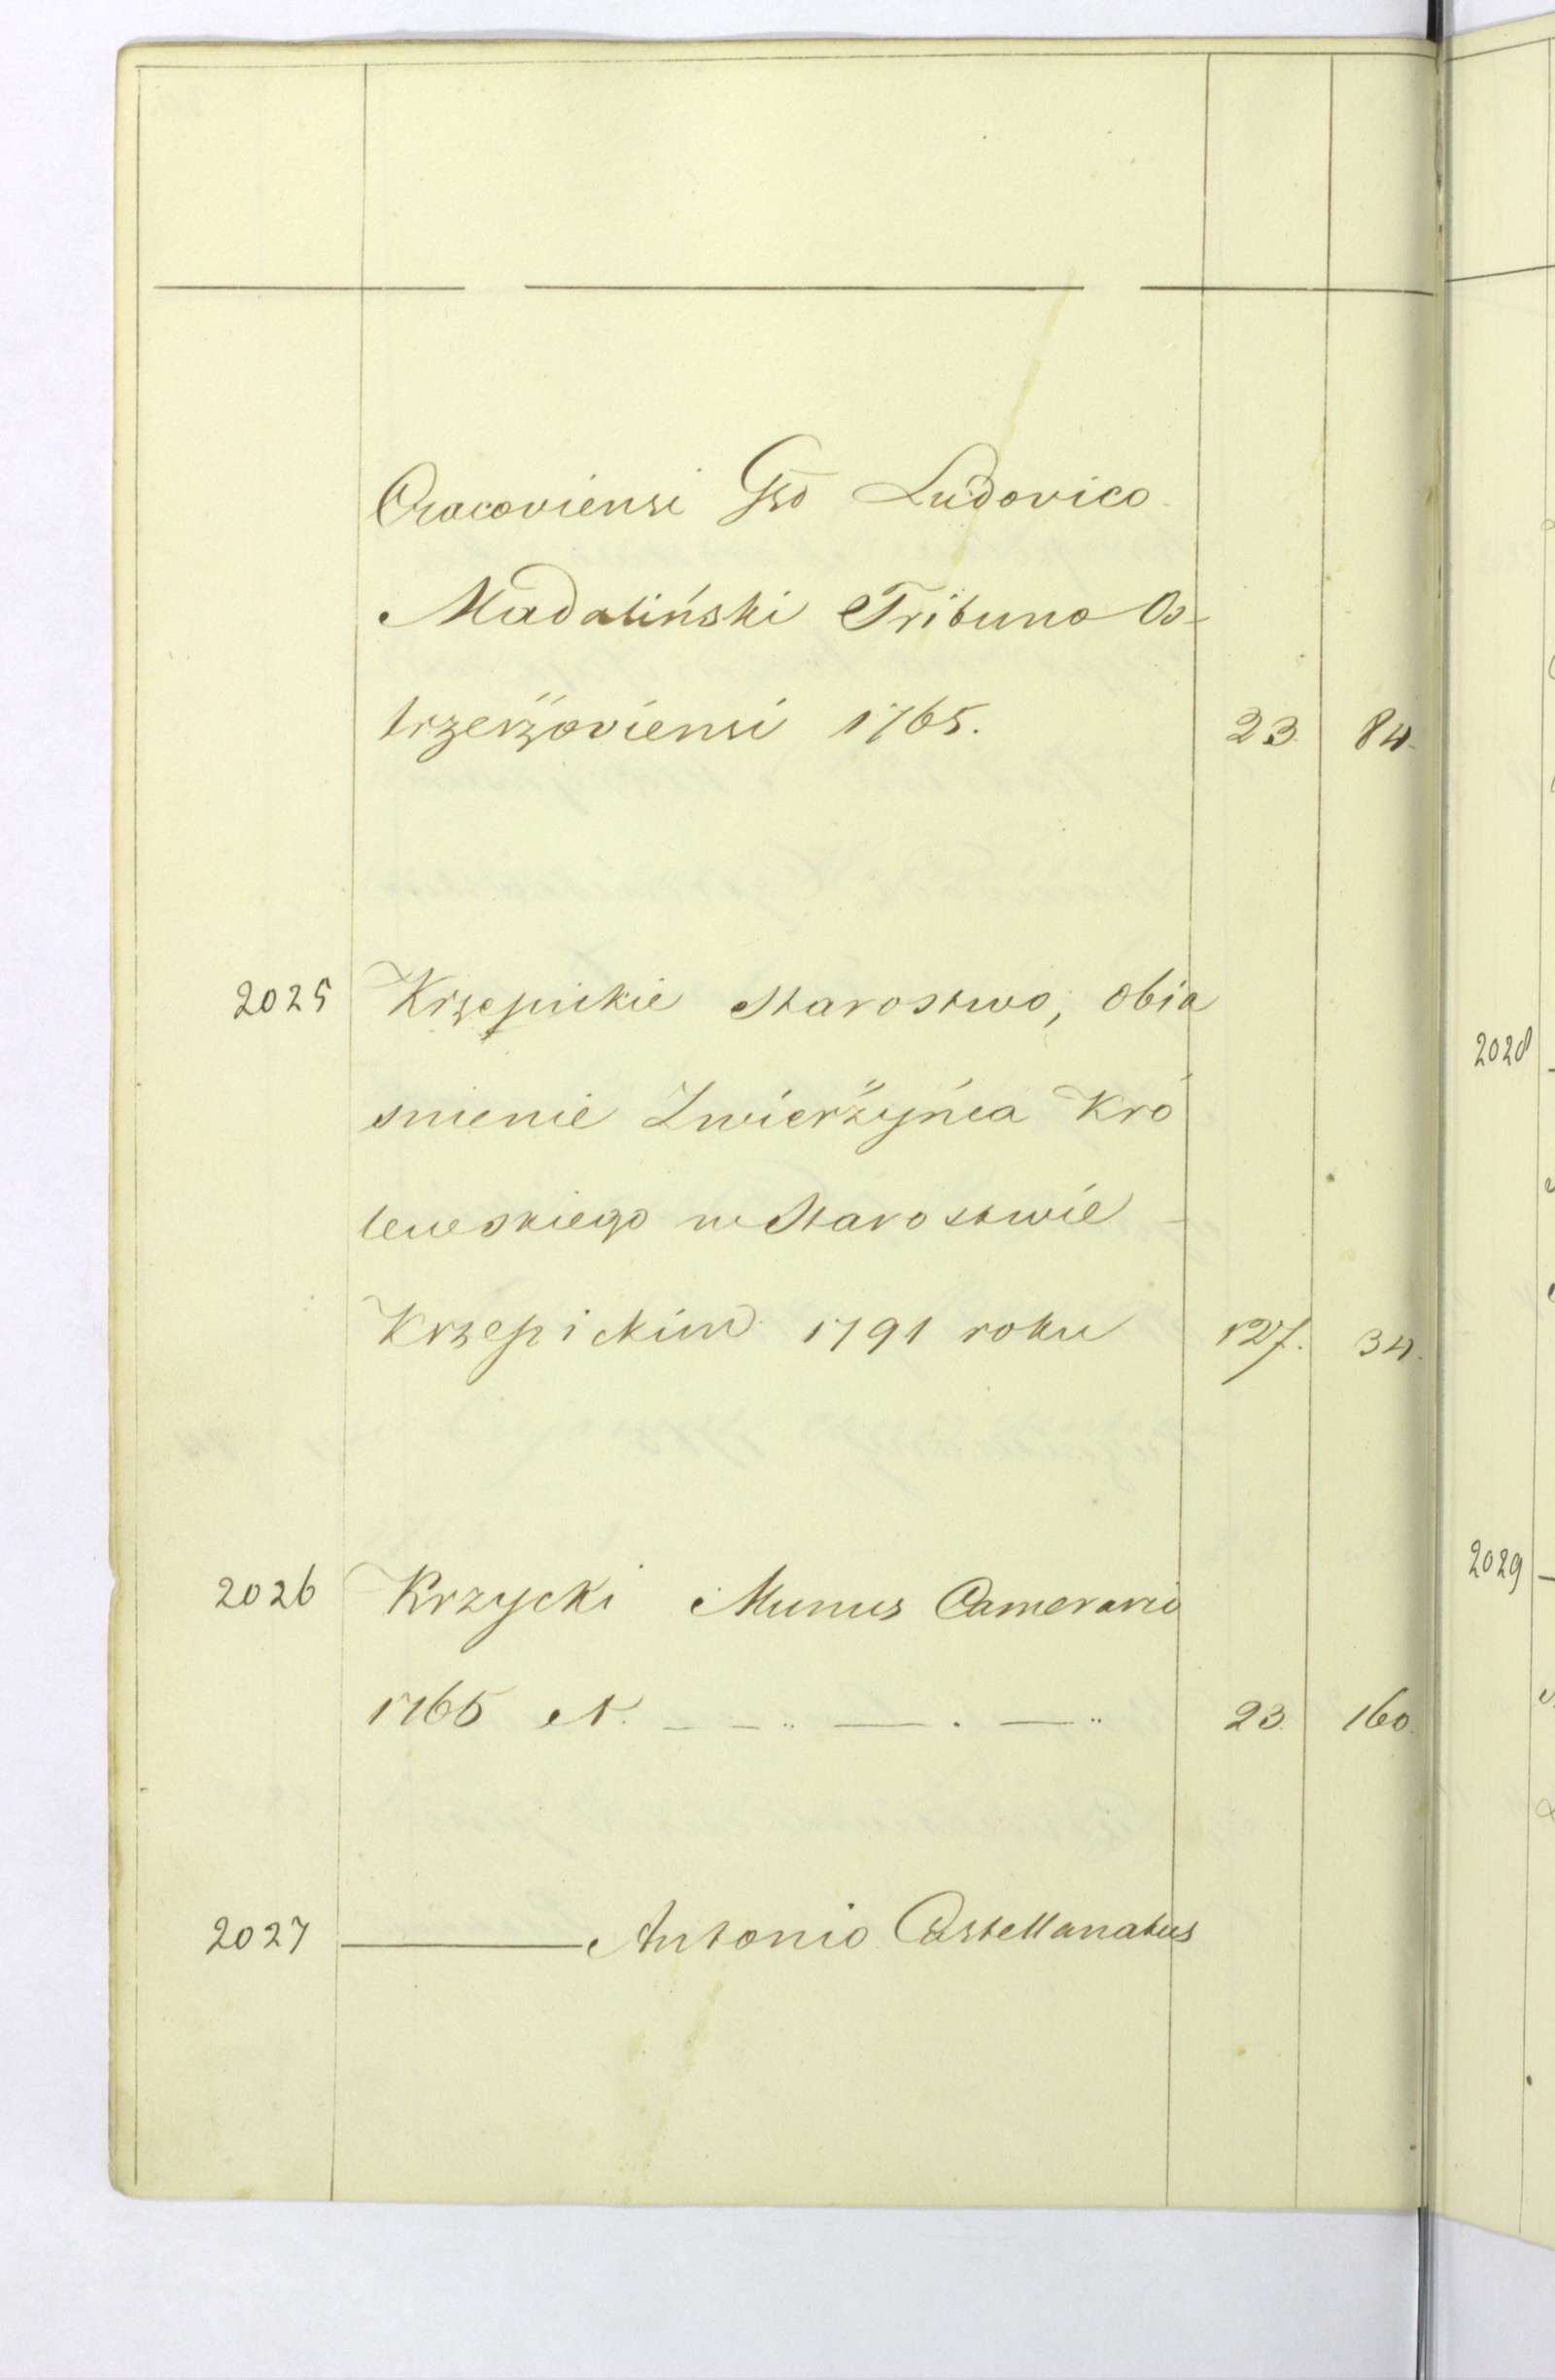 Cracoviensi Gso Ludovico
Madaliński Tribuno Os-
trzerżoviensi 1765. 23. 84.
2025 Krzepickie Starostwo, obia
snienie Zwierżyńca Kró
lewskiego w Starostwie
Krzepickim 1791 roku 127. 34.
2026 Krzycki Munus Camerario
1765 N. 23. 160.
2027 Antonio Castellanatus
2028
2029